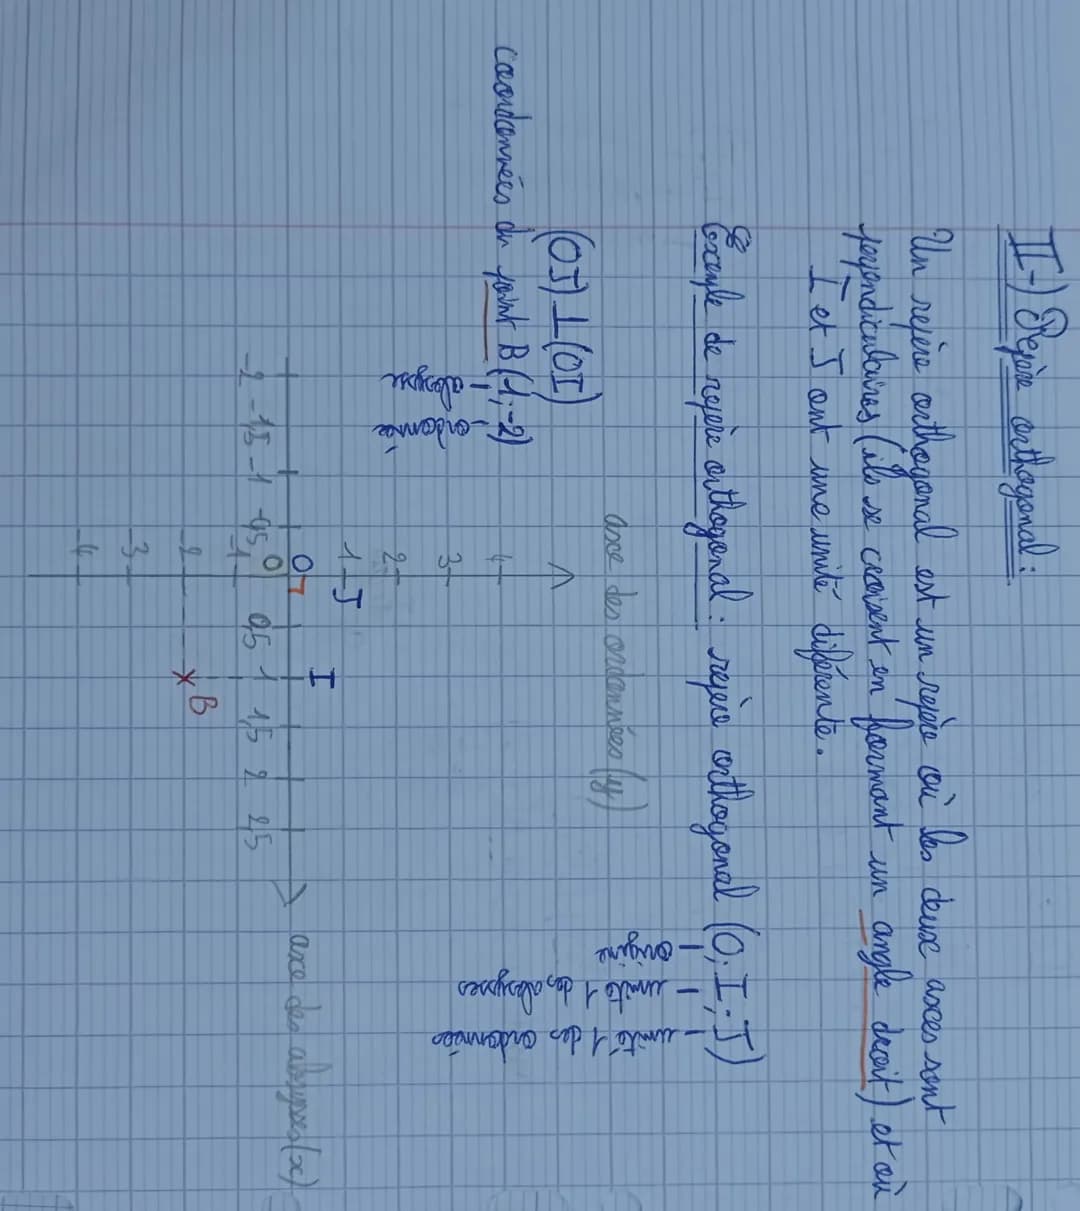 II-) Repère orthogonal :
Un repère orthogonal est un repère où les deux axes sont
perpendiculaires (ils se croisent en formant un angle droit) et où
I et J ont une unité diférente.
Exemple de repère orthogonal : repère orthogonal (O; I; J)
origine
unité 1 des abscysses
unité 1 des ordonnées
axe des ordonnées (y)
(OJ) ⊥ (OI)
coordonnées du point B (1; -2)
abscysse
ordonnée
4
3
2
1 J
O I
axe des abscysses (x)
-2 -1,5 -1 -0,5 0 0,5 1 1,5 2 2,5
-1
-2
B
-3
-4